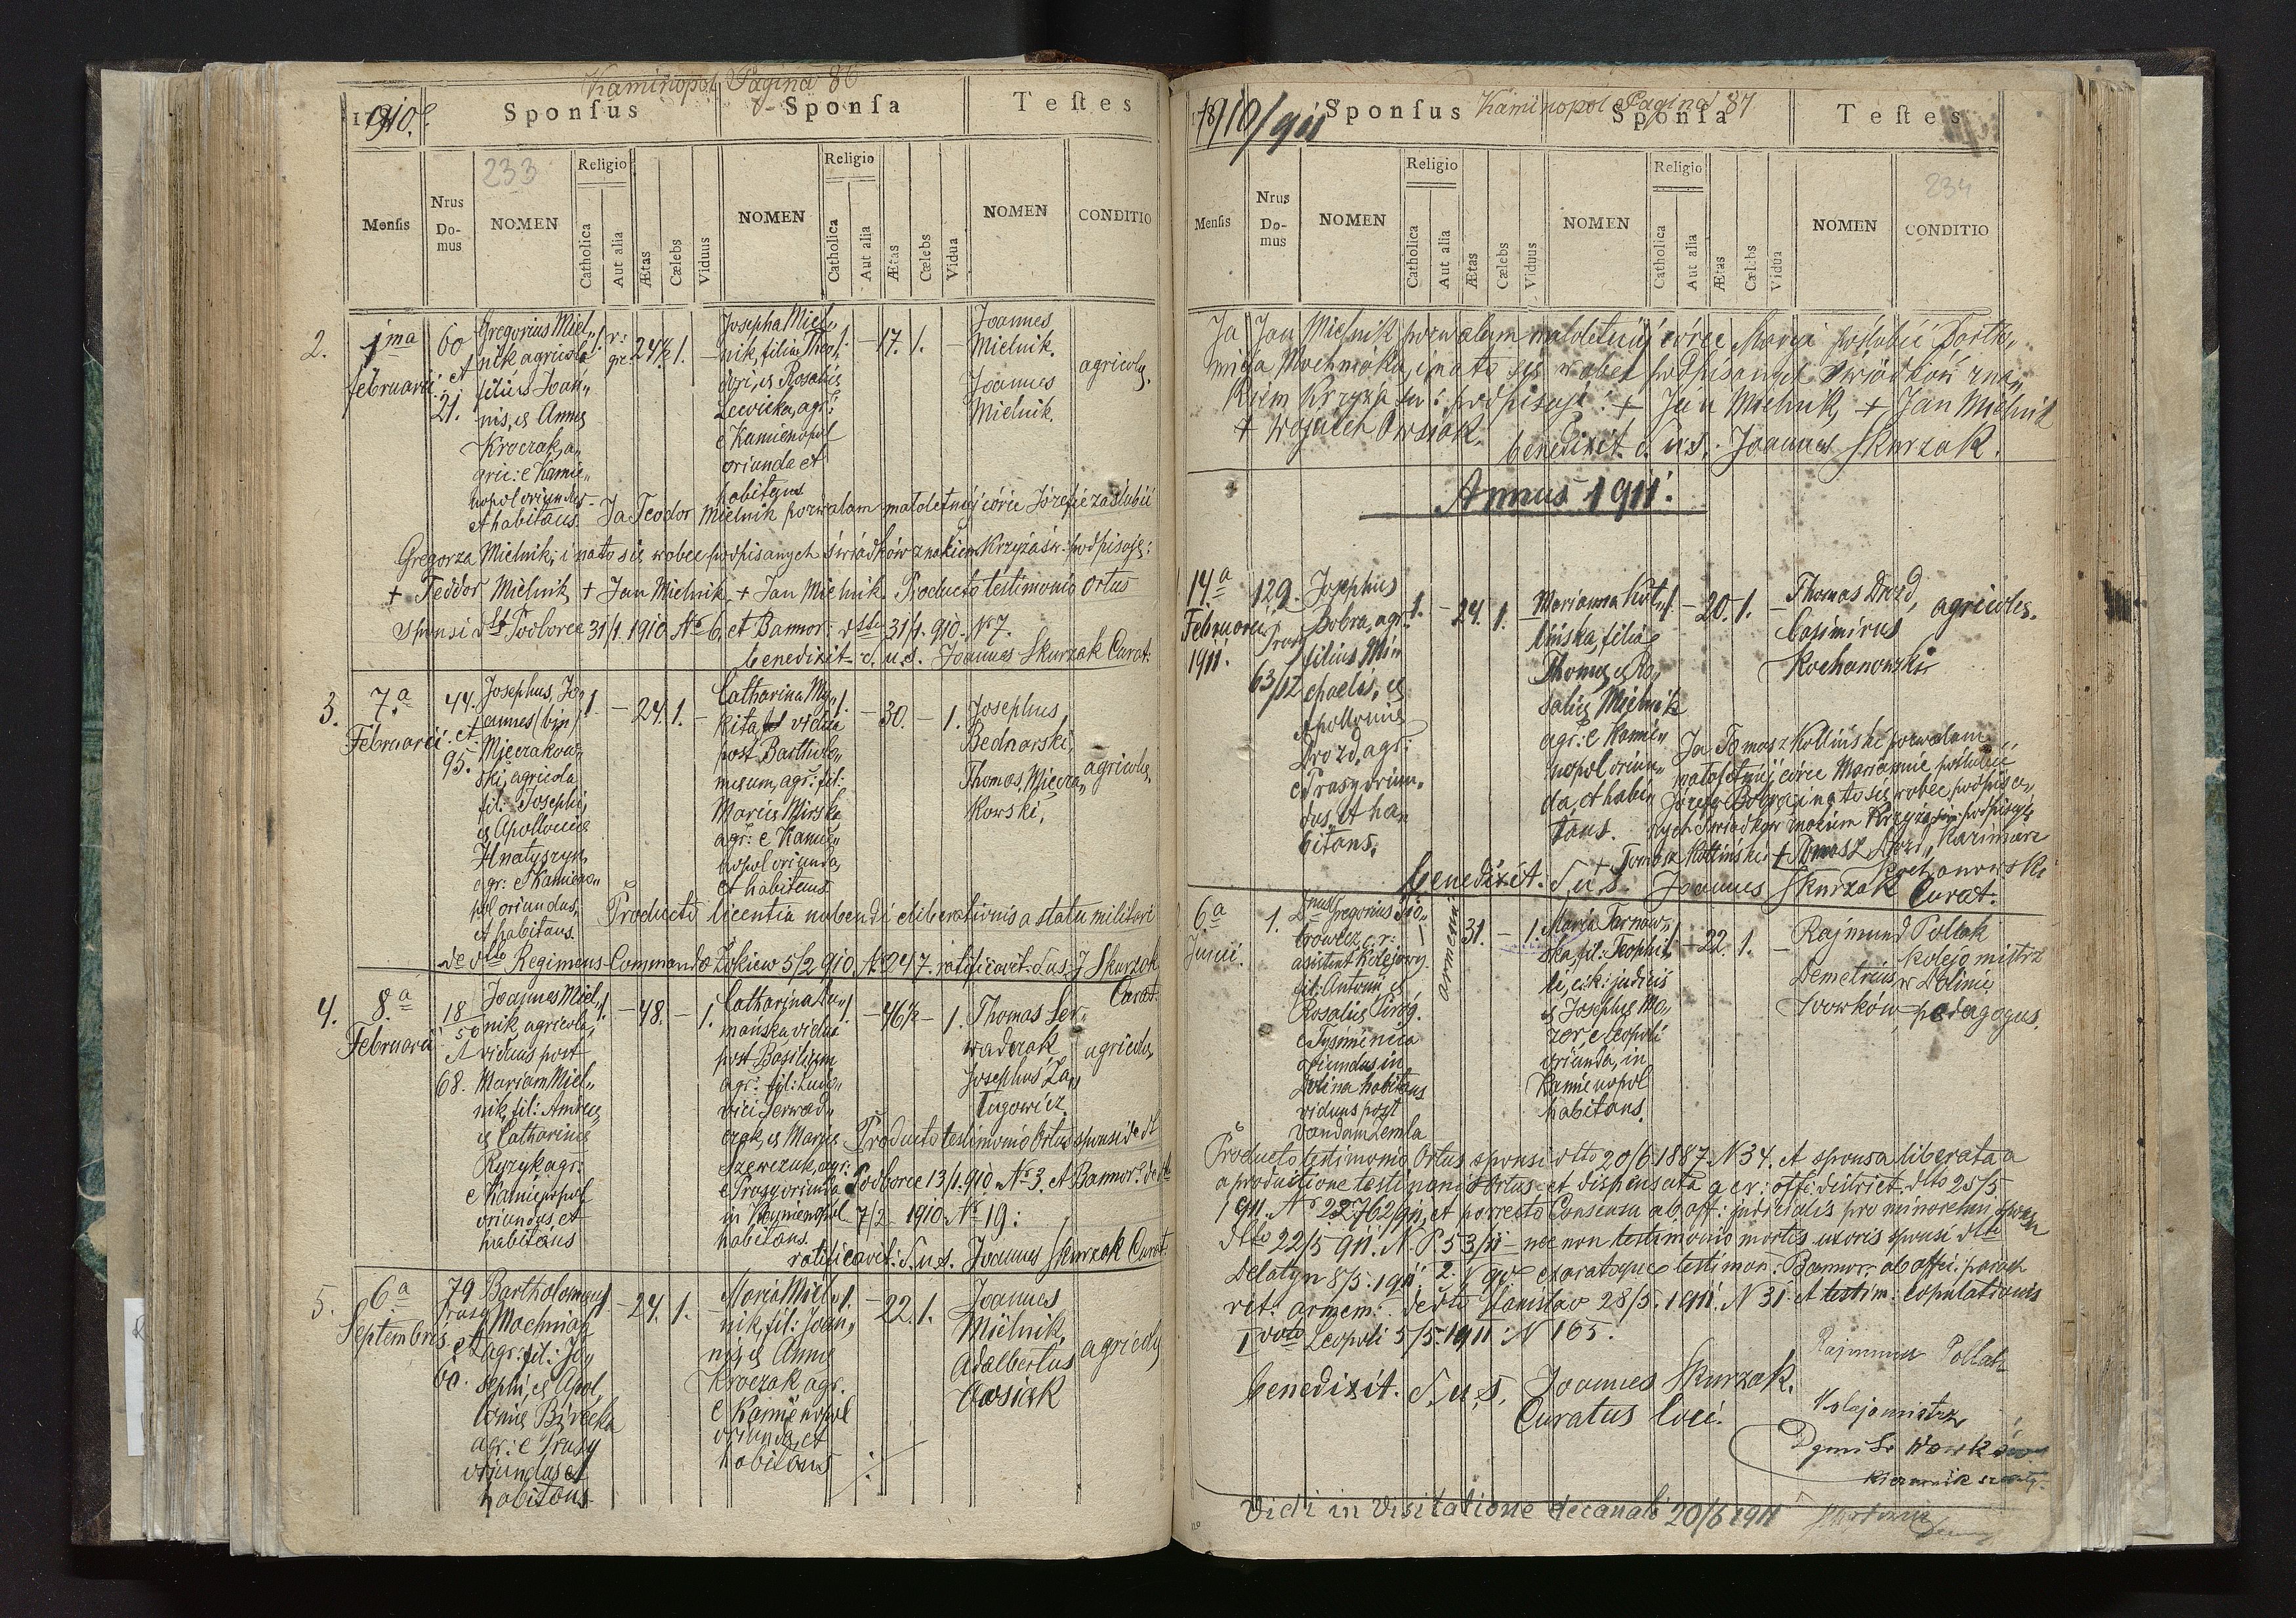 Kaminopol Pagina 86
1910.
Sponſus
Sponſa
Teſtes
233
Menſis
Nrus Do-mus
NOMEN
Religio
Catholica
Aut alia
Ætas
Cœlebs
Viduus
NOMEN
Religio
Catholica
Aut alia
Ætas
Cœlebs
Vidua
NOMEN
CONDITIO
2.
1ma
februarii
60
et
21.
Gregorius Miel„
nik agricola
filius Joan„
nis, et Annæ
Kroczak, a„
gric: e Kamie„
nopol oriundus
et habitans.
1.
r: gr:
24½
1.
–
Josepha Miel„
nik, filia Theo„
dori, et Rosaliæ
Lewicka, agr:
e Kamienopol
oriunda et
habitans
1.
–
17.
1.
–
Joannes
Mielnik.
Joannes
Mielnik.
agricolæ.
Ja Teodor Mielnik pozwalam małoletniéj córce Józefie zaślubić
Gregorza Mielnik, i na to się wobec podpisanych świadków znakiem Krzyża św. podpisuję:
+ Feddor Mielnik + Jan Mielnik + Jan Mielnik. Producto testimonio Ortus
Sponsi dtt Podborce 31/1 1910 No 6. et Bannor: dtto 31/1. 910. No 7.
benedixit c. u. s. Joannes Skurzak Curat.
3.
7.a
Februarii.
44.
et
95.
Josephus, Jo„
annes (bin)
Mieczakow„
ski, agricola
fil: Josephi,
et Apolloniæ
Hnatyszyn,
agr: e Kamieno„
pol oriundus,
et habitans.
1.
–
24.
1.
–
Catharina My„
kita, vidua
post Bartholo„
meum, agr: fil:
Mariæ Mirska
agr: e Kamie„
nopol oriunda,
et habitans.
1.
–
30.
–
1.
Josephus
Bednarski,
Thomas Miecza„
kowski,
agricolæ,
Producto licentia nubendi et liberationis a statu militari
de dtto Regiments-Commando Żółkiew 5/2 910, No 247. ratificavit S. u. s. J Skurzak
Curat.
4.
8.a
Februarii
18
50
et
68.
Joannes Miel„
nik agricola,
viduus post
Mariam Miel„
nik, fil: Andreæ
et Catharinæ
Ryzyk agr:
e Kamienopol
oriundus, et
habitans
1.
–
48.
–
1.
Catharina
mańska vidua
post Basilium
agr: fil: Ludo„
vici Serwad„
czak, et Mariæ
Szewczuk, agr:
e Prusy oriunda
in Kamienopol
habitans.
1.
–
46½
–
1.
Thomas Ser„
wadczak
Josephus Za„
Tagowicz
agricolæ
Producto testimonio Ortus sponsi de dt
Podborce 13/1. 910. No 3. et Bannor: de dtt
7/2 1910 No 19:
ratificavit: S. u. s. Joannes Skurzak Curat.
5.
6a
Septembris
79
Prusy
et
60.
Bartholomeus
Mochniak
agr: fil: Jo„
sephi, et Apol„
loniæ Birecka
agr: e Prusy
oriundus et
habitans.
1.
–
24.
1.
–
Maria Miel„
nik, fil: Joan„
nis, et Annæ
Kroczak agr.
e Kamienopol
oriunda, et
habitans
1.
–
22.
1.
Joannes
Mielnik,
Adalbertus
Owsiak
agricolæ
1910/911
Sponſus
Kaminopol Pagina 87
Sponſa
Teſtes
234
Menſis
Nrus Do-mus
NOMEN
Religio
Catholica
Aut alia
Ætas
Cœlebs
Viduus
NOMEN
Religio
Catholica
Aut alia
Ætas
Cœlebs
Vidua
NOMEN
CONDITIO
Ja Jan Mielnik pozwalam małoletniéj córce Maryi poślubić Bartło„
mieja Mochniaka, i na to się wobec podpisanych świadków zna„
kiem Krzyża św: podpisuję: + Jan Mielnik, + Jan Mielnik
+ Wojciech Owsiak.
benedixit S. u. s. Joannes Skurzak.
Annus 1911.
14a
Februarii
1911.
129.
Prusy
63/12
Josephus
Bobra, agr:
filius Mi„
chaelis, et
Apolloniæ
Drozd, agr:
e Prusy oriun„
dus, et ha„
bitans.
1.
–
24.
1.
–
Marianna Kot„
lińska, filia
Thomæ, et Ro„
saliæ Mielnik
agr: e Kamie„
nopol oriun„
da, et habi„
tans.
1.
–
20.
1.
–
Thomas Drozd,
Casimirus
Kochanowski
agricolæ.
Ja Tomasz Kotliński pozwalam
małoletniéj córce Mariannie poślubić
Józefa Bobra, i na to się wobec podpisa„
nych świadków znakiem Krzyża św podpisuję
+ Tomasz Kotliński + Tomasz Drozd, Kazimierz
Kochanowski
benedixit. S. u. s. Joannes Skurzak Curat.
6a
Junii.
1.
Dnus Gregorius
c. r:
asistent kolejowy
fil: Antonii, et
Rosaliæ Pirog.
e Tyśmienica
oriundus in
Dolina habitans
viduus post
Vandam Zemla
–
armeni
31.
–
1.
Maria Tarnaw„
ska, fil: Teophi„
li, c.k: judicis
et Josephæ Mo„
zer, e Leopoli
oriunda, in
Kamienopol
habitans.
1
–
22.
1.
–
Rajmund Pollak
kolejomistrz
w Dolinie
Demetrius
Wowków pedagogus.
Producto testimonio Ortus sponsi dtto 20/6 1887. N 34. et sponsa liberata a
a productione testimonii Ortus et dispensata a c. r: offi. district. dtto 25/5
1911. No 22762/911, et porrecto Consensu ab off: judicialis pro minorenni sponsa
dtto 22/5 911. N. P. 53/11 – nec non testimonio mortis uxoris sponsi dtto
Delatyn 8/5. 1911. exaratoque testimon: Bannor: ab offi: paroch
rit: armen: de dtto Stanislao 28/5. 1911. N 31 et testim: Copulationis
1 voto Leopoli 5/5. 1911. N 165.
benedixit. S. u. s. Joannes Skurzak.
Curatus loci.
Rajmund Pollak
Kolejomistrz
Dymitr Wowków
kierownik szkoły
Vidi in Visitatione decanali 20/6 1911